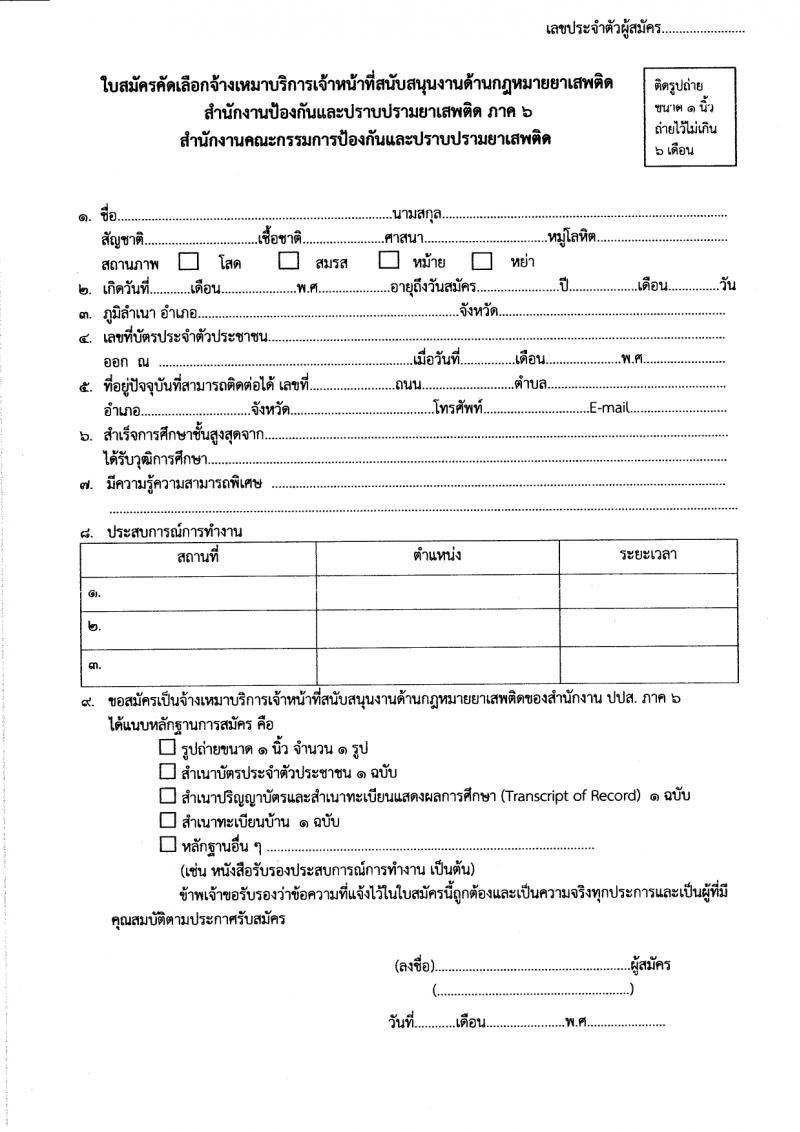 เลขประจำตัวผู้สมัคร........................
ใบสมัครคัดเลือกจ้างเหมาบริการเจ้าหน้าที่สนับสนุนงานด้านกฎหมายยาเสพติด
สำนักงานป้องกันและปราบปรามยาเสพติด ภาค ๖
สำนักงานคณะกรรมการป้องกันและปราบปรามยาเสพติด
ติดรูปถ่าย
ขนาด ๑ นิ้ว
ถ่ายไว้ไม่เกิน
๖ เดือน
๑. ชื่อ................................................................................นามสกุล...................................................................................
สัญชาติ.................................เชื้อชาติ........................ศาสนา....................................หมู่โลหิต......................................
สถานภาพ โสด สมรส หม้าย หย่า
๒. เกิดวันที่............เดือน......................พ.ศ.....................อายุถึงวันสมัคร........................ปี....................เดือน...............วัน
๓. ภูมิลำเนา อำเภอ............................................................................จังหวัด..................................................................
๔. เลขที่บัตรประจำตัวประชาชน.....................................................................................................................................
ออก ณ ..........................................................................เมื่อวันที่................เดือน......................พ.ศ........................
๕. ที่อยู่ปัจจุบันที่สามารถติดต่อได้ เลขที่.........................ถนน...........................ตำบล....................................................
อำเภอ................................จังหวัด..........................................โทรศัพท์...............................E-mail............................
๖. สำเร็จการศึกษาชั้นสูงสุดจาก.......................................................................................................................................
ได้รับวุฒิการศึกษา.......................................................................................................................................................
๗. มีความรู้ความสามารถพิเศษ ....................................................................................................................................
.......................................................................................................................................................................................
๘. ประสบการณ์การทำงาน
สถานที่ ตำแหน่ง ระยะเวลา
๑.
๒.
๓.
๙. ขอสมัครเป็นจ้างเหมาบริการเจ้าหน้าที่สนับสนุนงานด้านกฎหมายยาเสพติดของสำนักงาน ปปส. ภาค ๖
ได้แนบหลักฐานการสมัคร คือ
รูปถ่ายขนาด ๑ นิ้ว จำนวน ๑ รูป
สำเนาบัตรประจำตัวประชาชน ๑ ฉบับ
สำเนาปริญญาบัตรและสำเนาทะเบียนแสดงผลการศึกษา (Transcript of Record) ๑ ฉบับ
สำเนาทะเบียนบ้าน ๑ ฉบับ
หลักฐานอื่น ๆ ................................................................................................
(เช่น หนังสือรับรองประสบการณ์การทำงาน เป็นต้น)
ข้าพเจ้าขอรับรองว่าข้อความที่แจ้งไว้ในใบสมัครนี้ถูกต้องและเป็นความจริงทุกประการและเป็นผู้ที่มี
คุณสมบัติตามประกาศรับสมัคร
(ลงชื่อ).........................................................ผู้สมัคร
(........................................................)
วันที่............เดือน.......................พ.ศ.......................